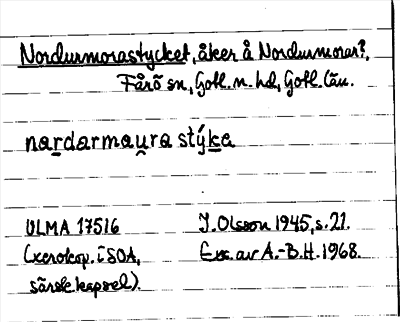 Nordurmorastycket, åker å Nordurmorar?,
Fårö sn, Gotl. n. hd, Gotl. län.
nardarmaura stýka
ULMA 17516 J. Olsson 1945, s. 21.
(xerokop. i SOA, Exc. av A.-B.H. 1968.
särsk kapsel).